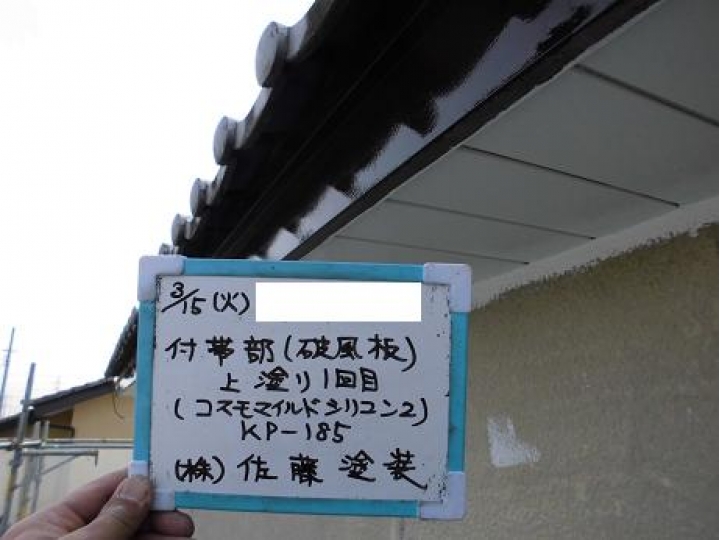 3/15(火)
付帯部(破風板)
上塗り1回目
(コスモマイルドシリコン2)
KP-185
(株)佐藤塗装